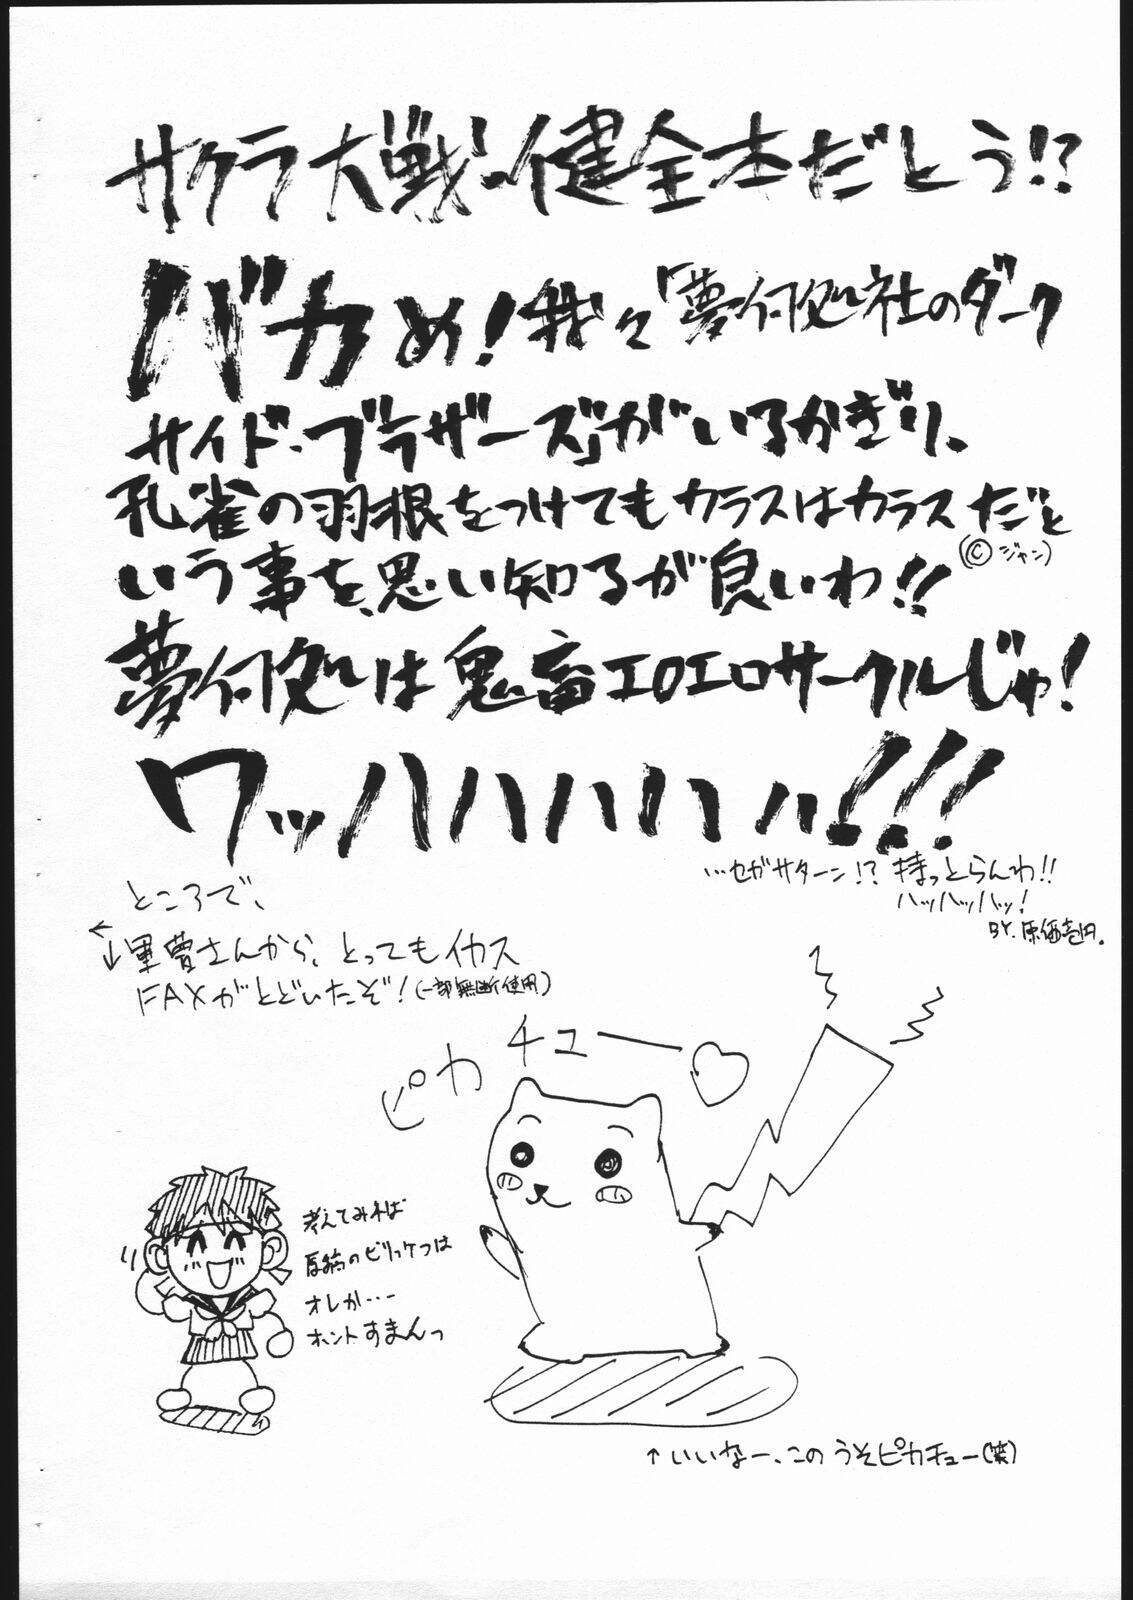 サクラ大戦の健全本だとう!?
バカめ!我々「夢何処社のダーク
サイド・ブラザーズ」がいるかぎり、
孔雀の羽根をつけてもカラスはカラスだと
(©ジャン)
いう事を、思い知るが良いわ!!
夢何処は鬼畜エロエロサークルじゃ!
ワッハハハハハハ!!!
…セガサターン!?持っとらんわ!!
ハッハッハッ!
BY.原価壱円。
ところで、
←↓里曽さんから、とってもイカス
FAXがとどいたぞ!(一部無断使用)
ピカチューー♡
考えてみれば
原稿のビリッケツは
オレか・・・
ホントすまんっ
↑いいなー、このうそピカチュー(笑)